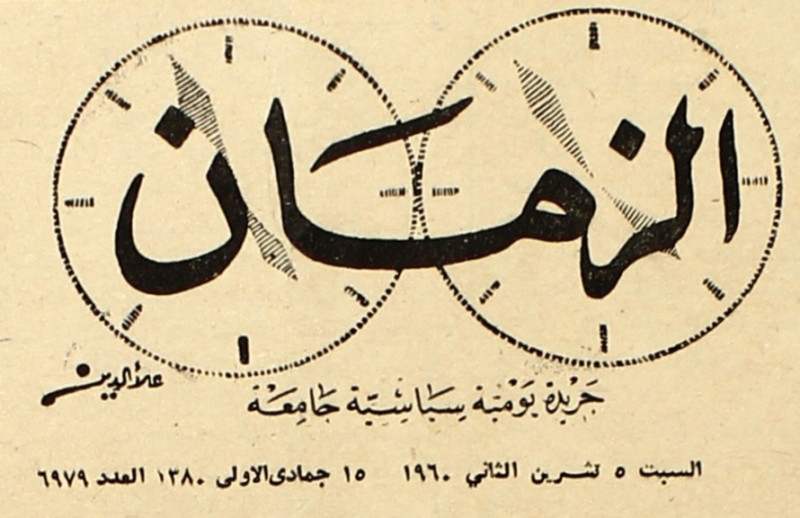 الزمان
علاءالدين
جَريدة يَوْميّة سِيَاسيّة جَامِعَة
السبت ٥ تشرين الثاني ١٩٦٠ ١٥ جمادى الاولى ١٣٨٠ العدد ٦٩٧٩